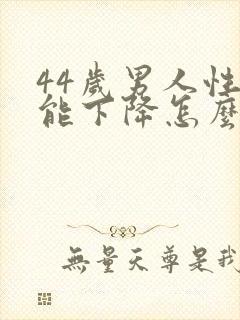 44歲男人性
能下降怎麼
無量天尊是我